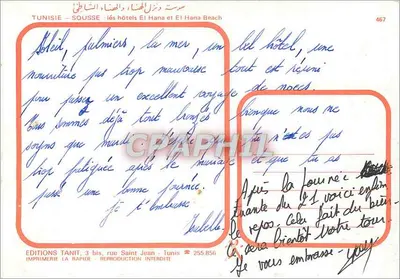 سوسة ونزل الهناء والهناء الشاطئ
TUNISIE - SOUSSE les hôtels El Hana et El Hana Beach
467
Soleil, palmiers, la mer, un bel hôtel, une
nourriture pas trop mauvaise tout est réuni
pour passer un excellent voyage de noces.
Nous sommes déjà tout bronzés bien que nous ne
soyons que mardi. es pas
trop fatiguée après le mariage et que tu as
passé une bonne journée.
Je t'embrasse
Après la journée
du 21 voici enfin
le repos. Cela fait du bien.
Ce sera bientôt votre tour.
Je vous embrasse
CPARAMA
EDITIONS TANIT, 3 bis, rue Saint Jean - Tunis ☎ 255.856
IMPRIMERIE LA RAPIDE REPRODUCTION INTERDITE